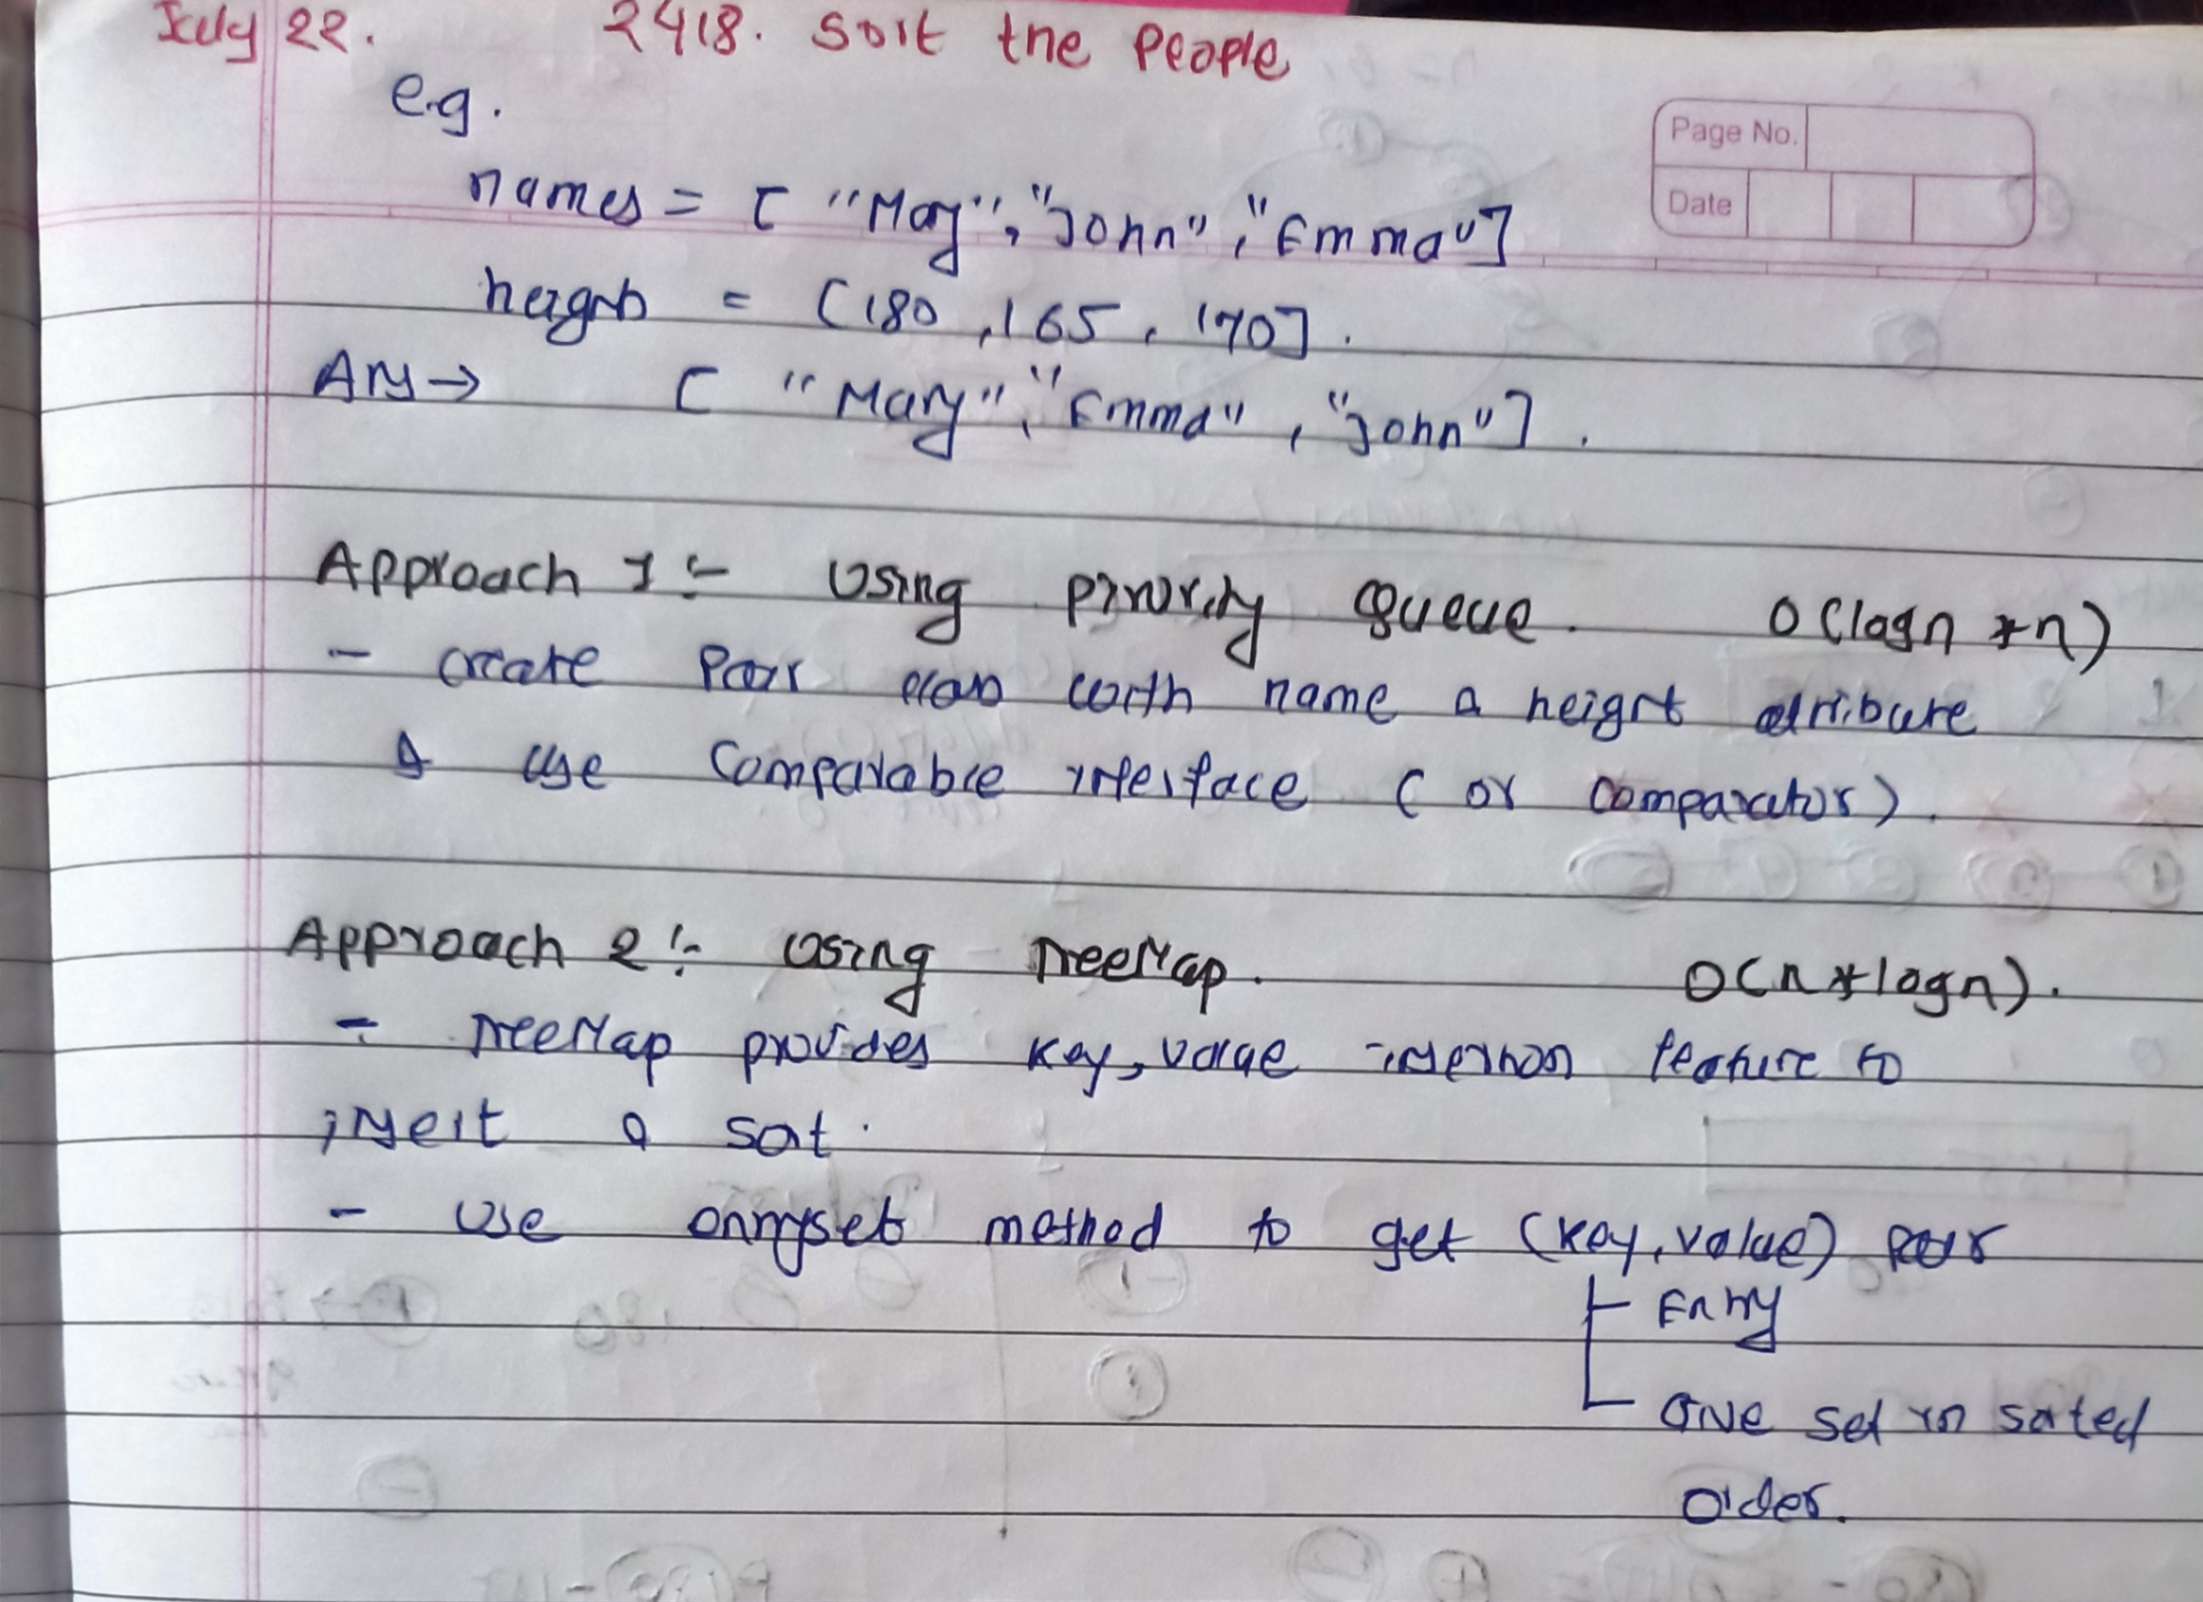 July 22. 2418. Sort the People
e.g.
Page No.
Date
names = [ "Mary", "John", "Emma"]
heights = [180, 165, 170].
Ans → [ "Mary", "Emma", "John"].
Approach 1 :- Using priority Queue. O(logn * n)
- create Pair class with name & height attribute
& use Comparable interface ( or comparator).
Approach 2 :- Using TreeMap. O(n * logn).
- TreeMap provides key, value insertion feature to
insert & sort.
- Use entryset method to get (key, value) pair
Entry
Give set in sorted
order.